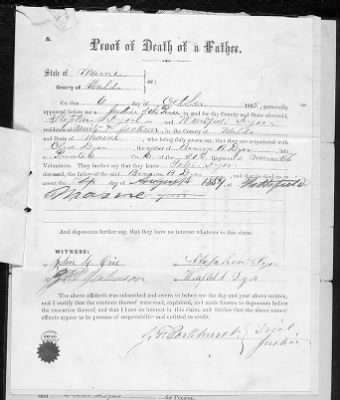 A.
Proof of Death of a Father.
State of Maine
County of Waldo ss:
On day of October 1865, personally
appeared before me a Justice of the Peace in and for the County and State aforesaid,
Stephen Dyer and Winfield Dyer
residents of Jackson, in the County of Waldo
State of Maine who being duly sworn, say that they are acquainted with
Dyer the mother of Benson B Dyer late
Private Co. Regiment Maine
Volunteers. They further say that they knew Dyer
deceased, the father of the said Benson B Dyer and that he died on or
about the day of August 1859, at Pittsfield
Maine
And deponents further say, that they have no interest whatever in this claim.
WITNESS:
Stephen Dyer
Johnson Winfield Dyer
The above affidavit was subscribed and sworn to before me the day and year above written,
and I certify that the contents thereof were read, explained, and made known to deponents before
the execution thereof and that I have no interest in this claim, and further that the above named
affiants appear to be persons of respectability and entitled to credit.
Parkhurst Trial
Justice
SEAL